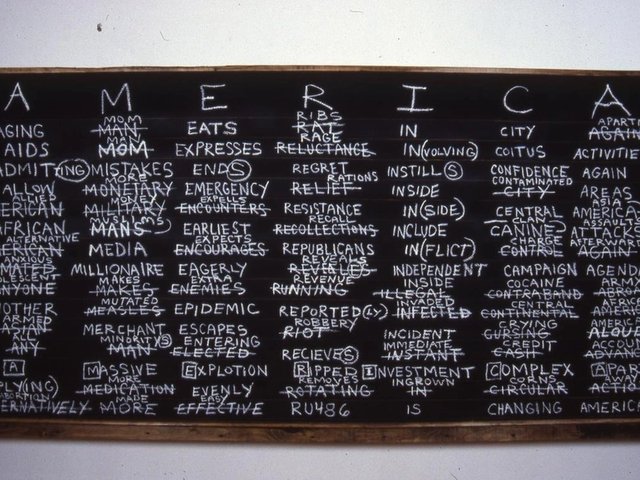 A M E R I C A
MOM RIBS APARTI
AGING MAN EATS RAT IN CITY AGAIN
MA RAGE
AIDS MOM EXPRESSES RELUCTANCE IN(VOLVING) COITUS ACTIVITIE
ADMIT(ING) MISTAKES END(S) REGRET INSTILL(S) CONFIDENCE AGAIN
MORE RATIONS CONTAMINATED
ALLOW MONETARY EMERGENCY RELIEF INSIDE CITY AREAS
ALLIED MONEY EXPELLS ASIA
ERICAN MILITARY ENCOUNTERS RESISTANCE IN(SIDE) CENTRAL AMERICA
MUSLIMS RECALL ASSAUL
AFRICAN MANS EARLIEST RECOLLECTIONS INCLUDE CANINE ATTACKS
ALTERNATIVE EXPECTS CHARGE AFTERWAR
MEDIA ENCOURAGES REPUBLICANS IN(FLICT) CONTROL AGAIN
ANXIOUS REVEALS
MATED MILLIONAIRE EAGERLY REVILE(S) INDEPENDENT CAMPAIGN AGEND
MAKES EATS REVENUE INSIDE COCAINE ARMA
ANYONE MAKES ENEMIES RUNNING ILLEGAL CONTRABAND
MUTATED INVADED CENTRAL AMERI
OTHER MEASLES EPIDEMIC REPORTED(LY) INFECTED CONTINENTAL
ASIAN ROBBERY CRYING AMERIC
MERCHANT ESCAPES RIOT INCIDENT CURSING
ALL MINORITY(S) ENTERING IMMEDIATE CREDIT ACCOU
ANY MAN ELECTED RECIEVE(S) INSTANT CASH ADVAN
A MASSIVE EXPLOTION RIPPED INVESTMENT COMPLEX APAR
MORE REMOVES INGROWN CORNS
PLY(ING) MEDICATION EVENLY ROTATING IN CIRCULAR
ABORTION MADE EASY
ERNATIVELY MORE EFFECTIVE RU486 IS CHANGING AMERICA